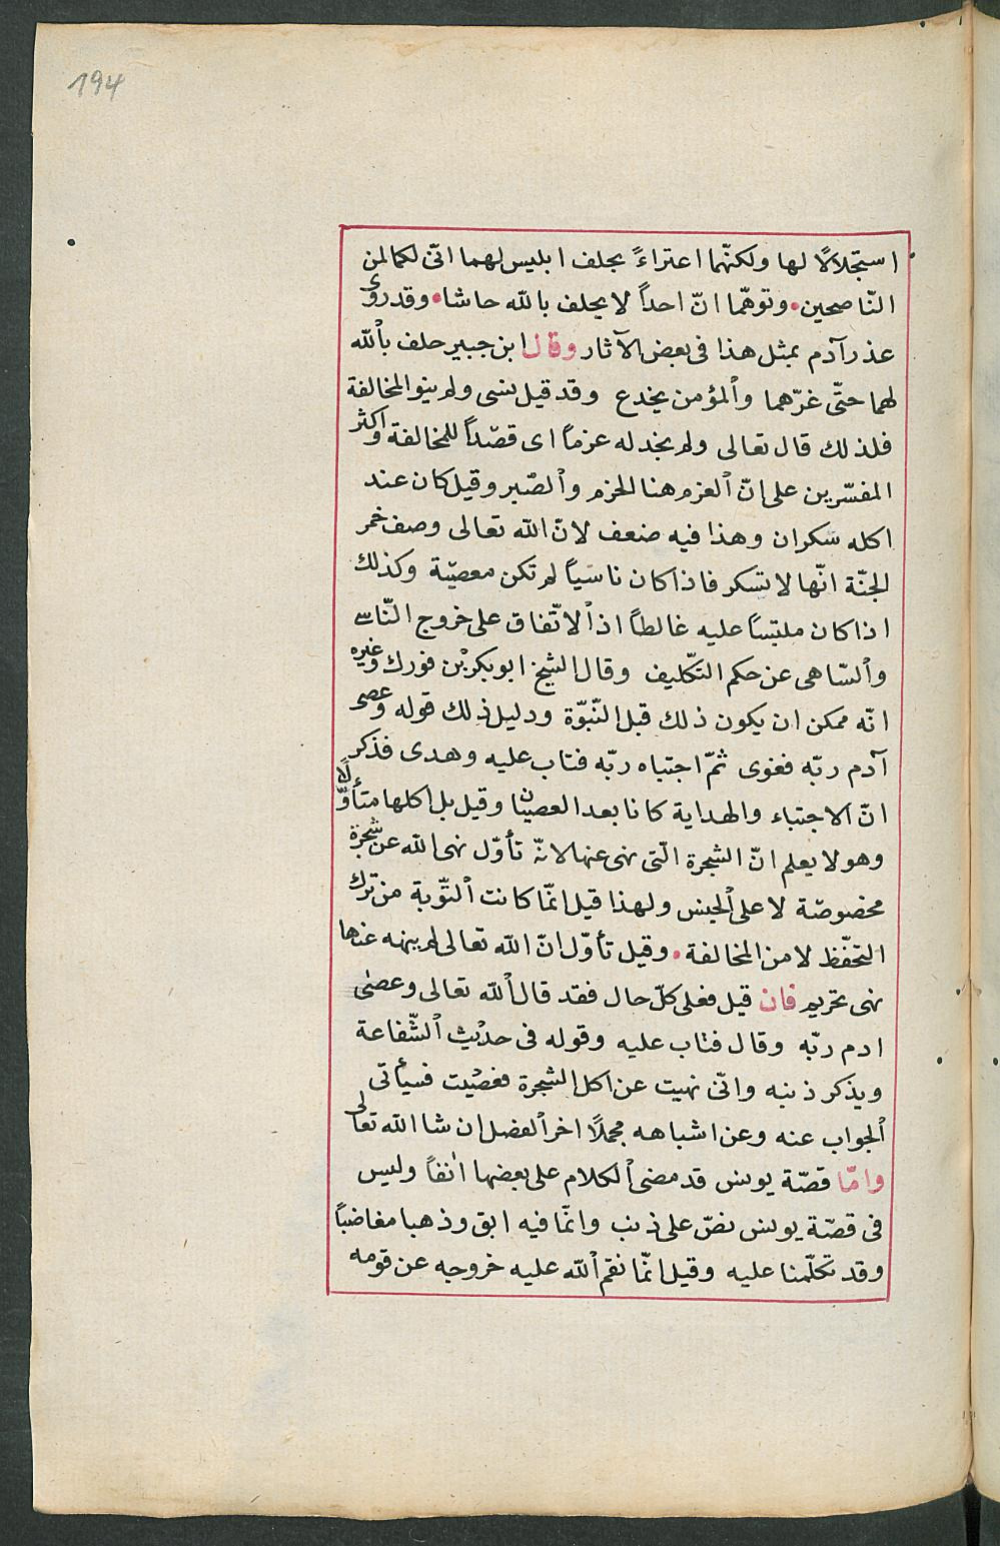 194
استحلالا لها ولكنّهما اعتراءً بحلف ابليس لهما انّى لكما لمن
النّاصحين. وتوهّما انّ احداً لا يحلف بالله حاشا. وقد روى
عذر آدم بمثل هذا فى بعض الآثار وقال ابن جبير حلف بالله
لهما حتّى غرّهما والمؤمن يخدع وقد قيل نسى ولم ينو المخالفة
فلذلك قال تعالى ولم نجد له عزماً اى قصداً للمخالفة واكثر
المفسّرين على انّ العزم هنا الحزم والصّبر وقيل كان عند
اكله سكران وهذا فيه ضعف لانّ الله تعالى وصف خمر
الجنّة انّها لا تسكر فاذا كان ناسَياً لم تكن معصيّة وكذلك
اذا كان ملبّساً عليه غالطاً اذ الاتّفاق على خروج النّاسى
والسّاهى عن حكم التكّليف وقال الشيخ ابو بكر بْن فورك وغيره
انّه ممكن ان يكون ذلك قبل النّبوّة ودليل ذلك قوله وعصى
آدم ربّه فغوى ثمّ اجتباه ربّه فتاب عليه وهدى فذكر
انّ الاجتباء والهداية كانا بعد العصيان وقيل بل اكلها متأوّلًا
وهو لا يعلم انّ الشجرة الّتى نهى عنها لانّه تأوّل نهى الله عن شجرة
مخصوصّة لا على الجنس ولهذا قيل انّما كانت التّوبة من ترك
التحفّظ لا من المخالفة. وقيل تأوّل انّ الله تعالى لم ينهه عنها
نهى تحريم فان قيل فعلى كلّ حال فقد قال الله تعالى وعصٰى
ادم ربّه وقال فتاب عليه وقوله فى حديث الشّفاعة
ويذكر ذنبه وانّى نهيت عن اكل الشجرة فعصيت فسيأتى
الجواب عنه وعن اشباهه مجملًا اخر الفصل ان شا الله تعالى
وامّا قصّة يونس قد مضى الكلام على بعضها انفاً وليس
فى قصّة يونس نصّ على ذنب وانّما فيه ابق وذهبا مغاضباً
وقد تكلّمنا عليه وقيل انّما نقم الله عليه خروجه عن قومه